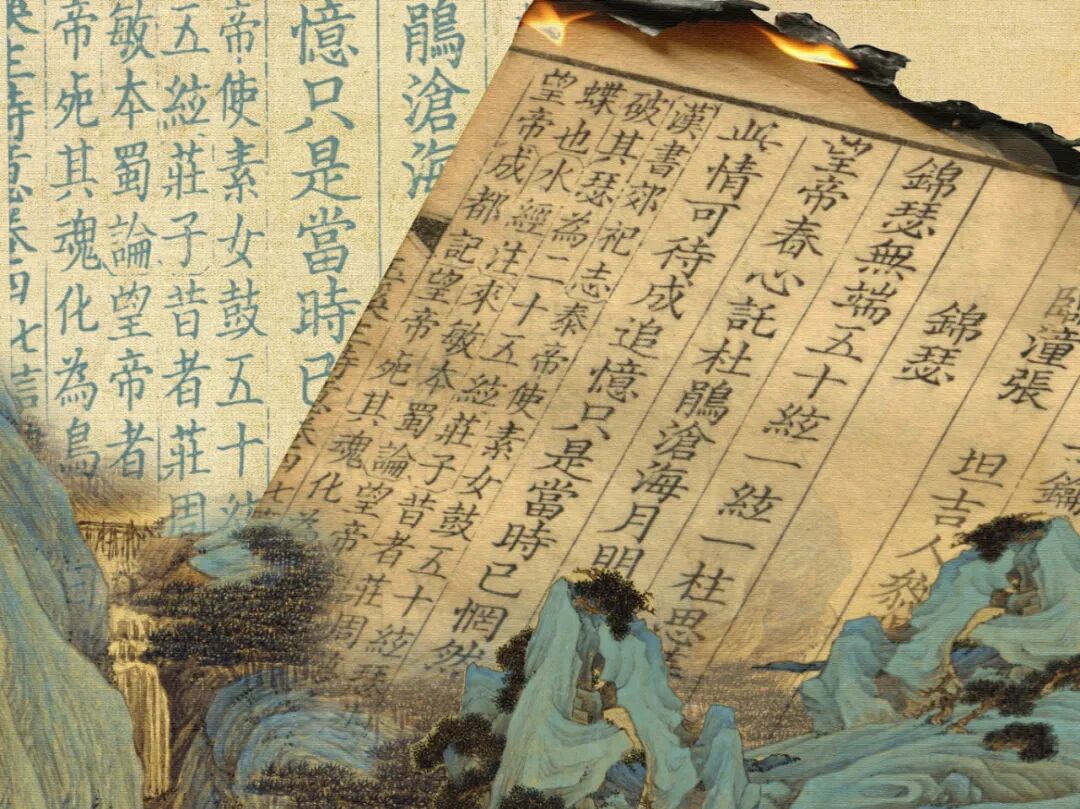 臨潼張坦吉人
錦瑟
錦瑟無端五十絃一絃一柱思
望帝春心託杜鵑滄海月明
此情可待成追憶只是當時已惘然
漢書郊祀志泰帝使素女鼓五十絃瑟
破其瑟為二十五絃莊子昔者莊周
蝶也水經注來敏本蜀論望帝
望帝成都記望帝死其魂化
鵑滄海
憶只是當時已
帝使素女鼓五十絃
五絃莊子昔者莊周
敏本蜀論望帝者
帝死其魂化為鳥
生詩意卷四 七言